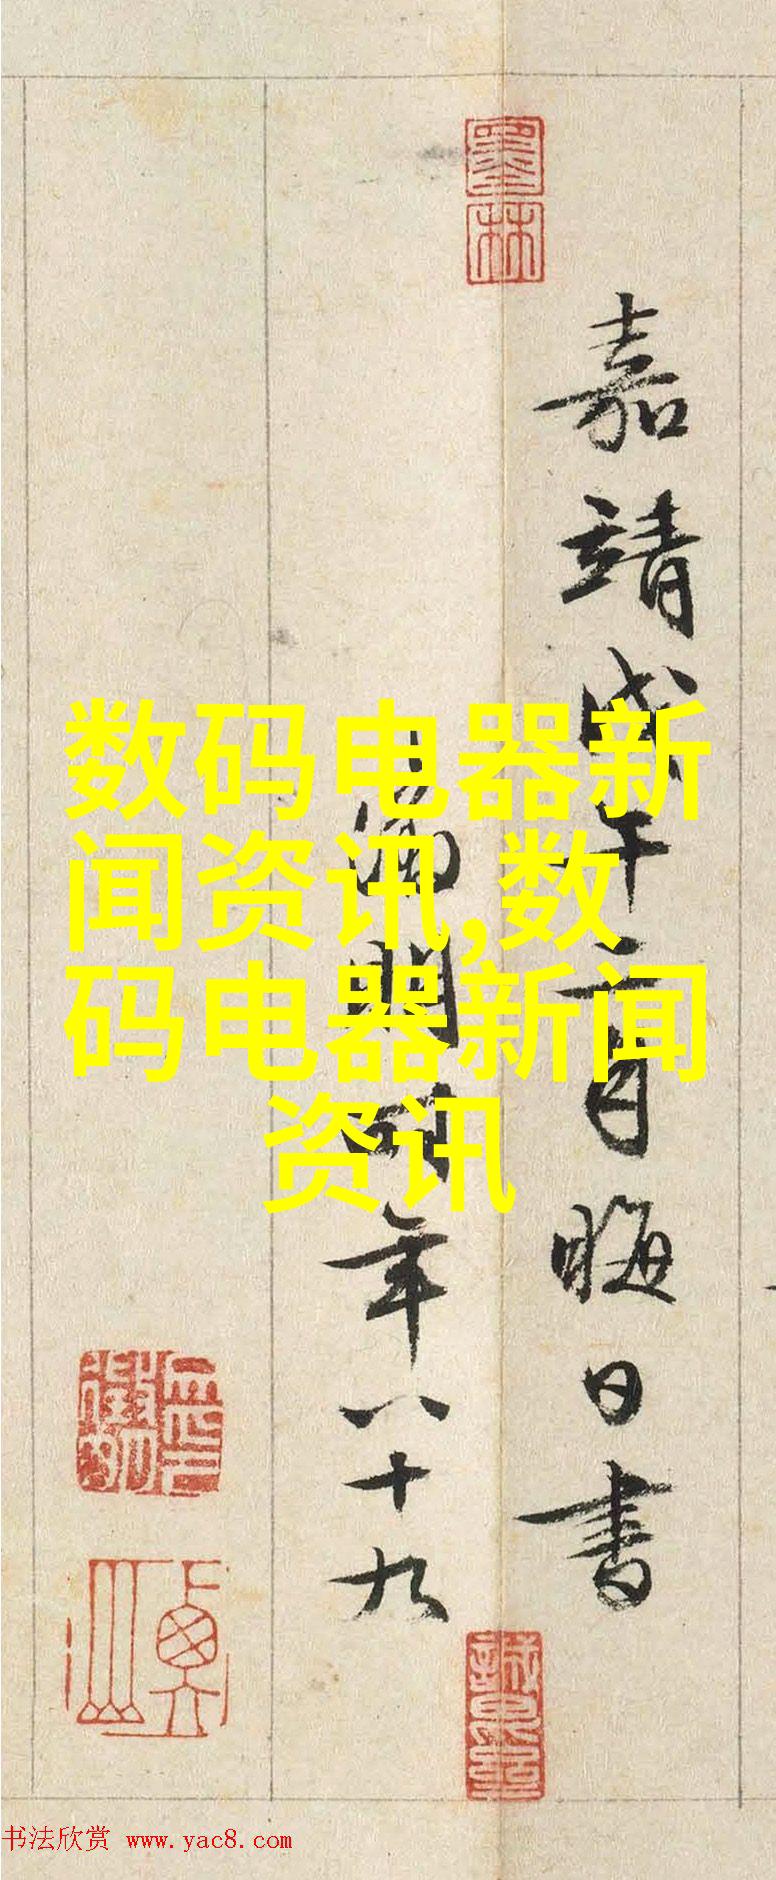 嘉靖戊午二月晦日书
徵明时年八十九
墨林
数码电器新
闻资讯,数
码电器新闻
资讯
书法欣赏 www.yac8.com